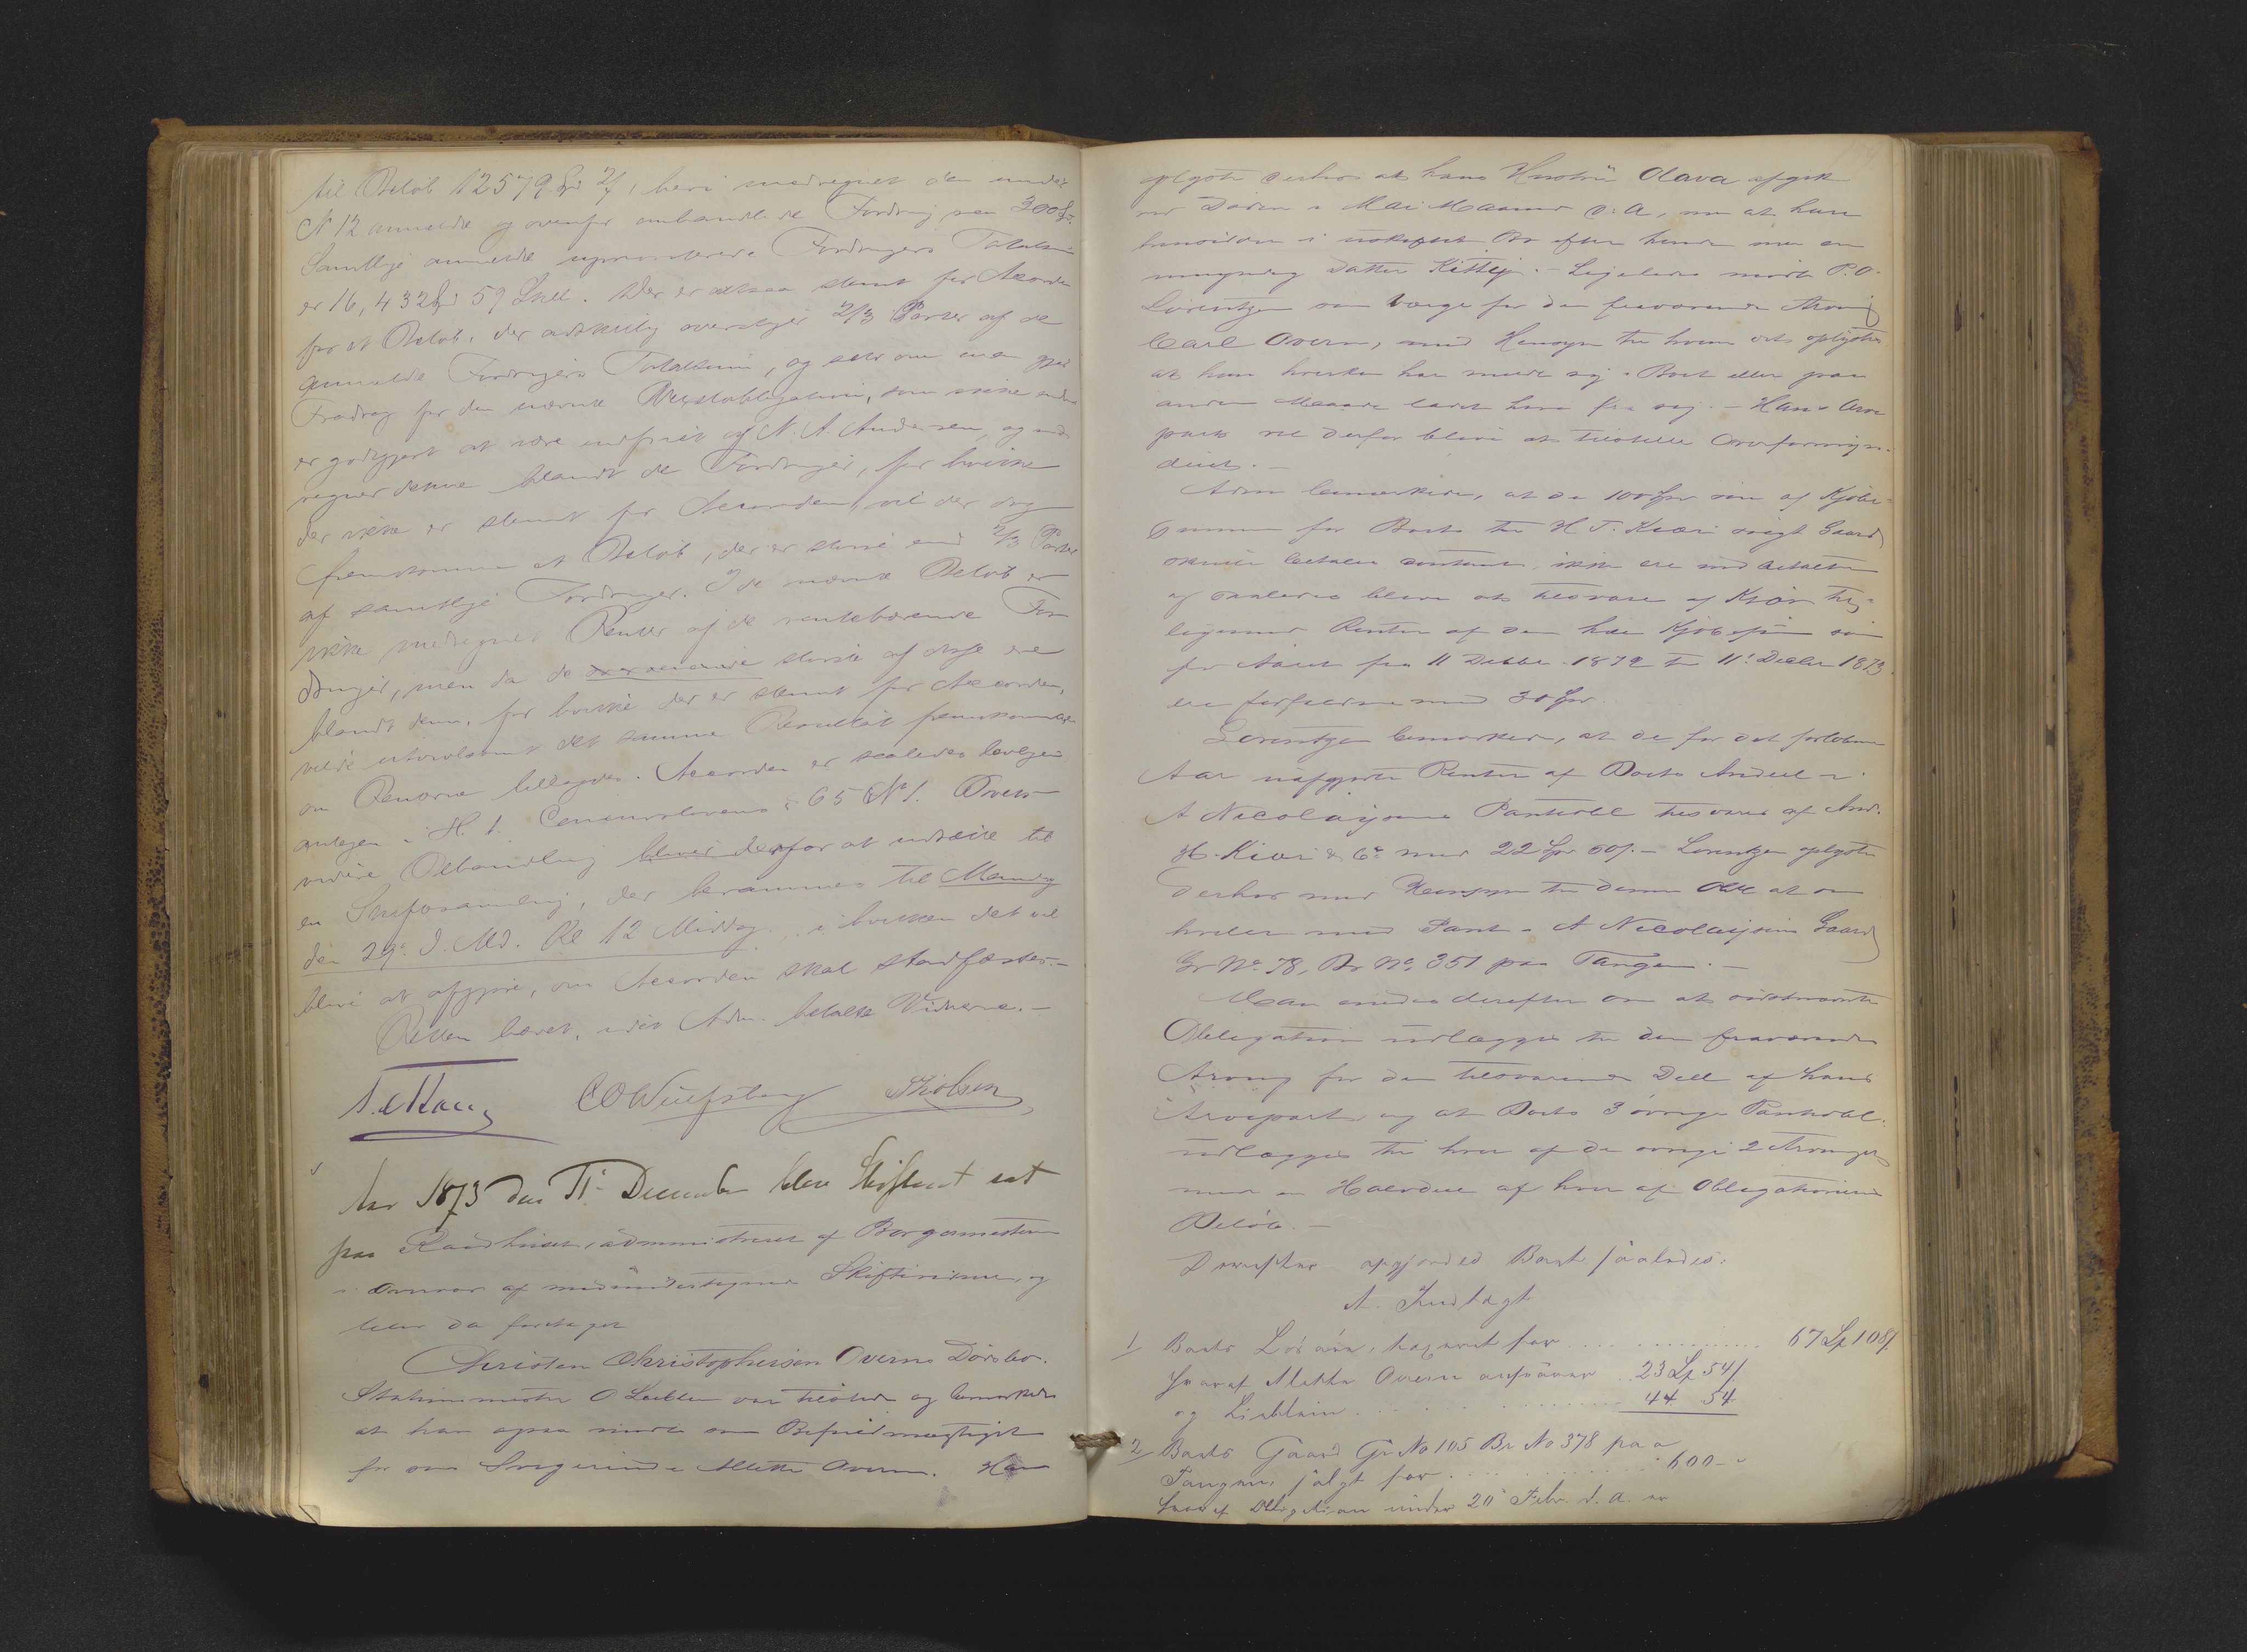 til Beløb 12579 Spd 2/ , heri medregnet den under
N 12 anmeldte og ovenfor omhandlede Fordring paa 300 Spd.
Samtlige anmeldte uprioriterede Fordringers Totalsum
er 16,432 Spd 59 Skill. Der er altsaa stemt for Accorden
for et Beløb, der adskillig overstiger 2/3 Parter af de
anmeldte Fordringers Totalsum, og selv om man gjør
Fradrag for den nævnte Vexelobligation, som ikke endnu
er godtgjort at være indfriet af N. A. Andersen, og
regner denne blandt de Fordringer, for hvilke
der ikke er stemt for Accorden, vil der dog
fremkomme et Beløb, der er større end 2/3 Parter
af samtlige Fordringer. I de nævnte Beløb er
ikke medregnet Renter af de rentebærende For
dringer, men da de største af disse ere
blandt dem, for hvilke der er stemt for Accorden,
vilde utvivlsomt det samme Resultat fremkomme
om Renterne tillagdes. Accorden er saaledes lovligen
antagen i H. t. Concurslovens § 65 N 1. Dens
videre Behandling bliver derfor at udsætte til
en Skiftesamling, der berammes til Mandag
den 29. d. Md. Kl 12 Middag, i hvilken det vil
blive at afgjøre, om Accorden skal stadfæstes.-
Retten hævet, idet Adm. betalte Vidnerne.-
COWulfsberg
Aar 1873 den 11 December blev Skifteret sat
paa Raadhuset, administreret af Borgermesteren
i Overvær af medundertegnede Skiftevidner, og
blev da foretaget
Christen Christophersen Overns Dødsbo.
Stationsmester O var tilstede og bemærkede
at han ogsaa møder som Befuldmægtiget
for sin Svigerinde Mette Overn. Han
oplyste derhos at hans Hustru Olava afgik
ved Døden i Mai Maaned d. A., men at han
hensidder i uskiftet Bo efter hende med en
umyndig Datter Kitty.- Ligeledes mødte P.O.
Lorentzen som Værge for den fraværende Arving
Carl Overn, med Hensyn til hvem det oplystes
at han hverken har meldt sig i Boet eller paa
anden Maade ladet høre fra sig.- Hans Arve
part vil derfor blive at tilstille Overformyn-
deriet.-
Adm bemærkede, at de 100 Spd som af Kjøbe-
summen for Boets til H T. Kiær solgt Gaard
skulde betales contant, ikke ere indbetalte
og saaledes blive at tilsvare af Kiær. Lige
ligesom Renten af den hele Kjøbesum
for Aaret fra 11 Decbr. 1872 til 11 Decbr 1873
ere forfaldne med 30 Spd
Lorentzen bemærkede, at de for det forløbne
Aar uafgjorte Renter af Boets Andeel i
A Nicolaysens Panteobl tilsvares af And.
H. Kiær & Co med 22 Spd 60/.- Lorentzen oplyste
derhos med Hensyn til denne Obl at den
hviler med Pant i A Nicolaysens Gaard
Gr No. 78, Br No. 351 paa Tangen.-
Man enedes derefter om at sidstnævnte
Obligation udlægges til den fraværende
Arving for den tilsvarende Deel af hans
Arvepart og at Boets 3 øvrige Panteobl.
udlægges til hver af de øvrige 2 Arvinger
med en Halvdeel af hver af Obligationernes
Beløb.-
Derefter opgjordes Boet saaledes:
A. Indtægt
1/ Boets Løsøre, taxeret for . . . . . . 67 Sp 108/
hvoraf Mette Overn ansvarer 23 Sp 54/
og . . . . . . 44 54
2/ Boets Gaard Gr No 105 Br No 378 paa
Tangen, solgt for . . . . . . 600 - -
hvoraf Obligation under 20 Febr. d. A. er